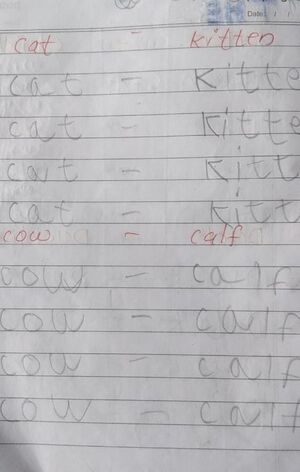 Date: / /
cat - kitten
cat - kitte
cat - kitte
cat - kitt
cat - kitt
cow - calf
cow - calf
cow - calf
cow - calf
cow - calf